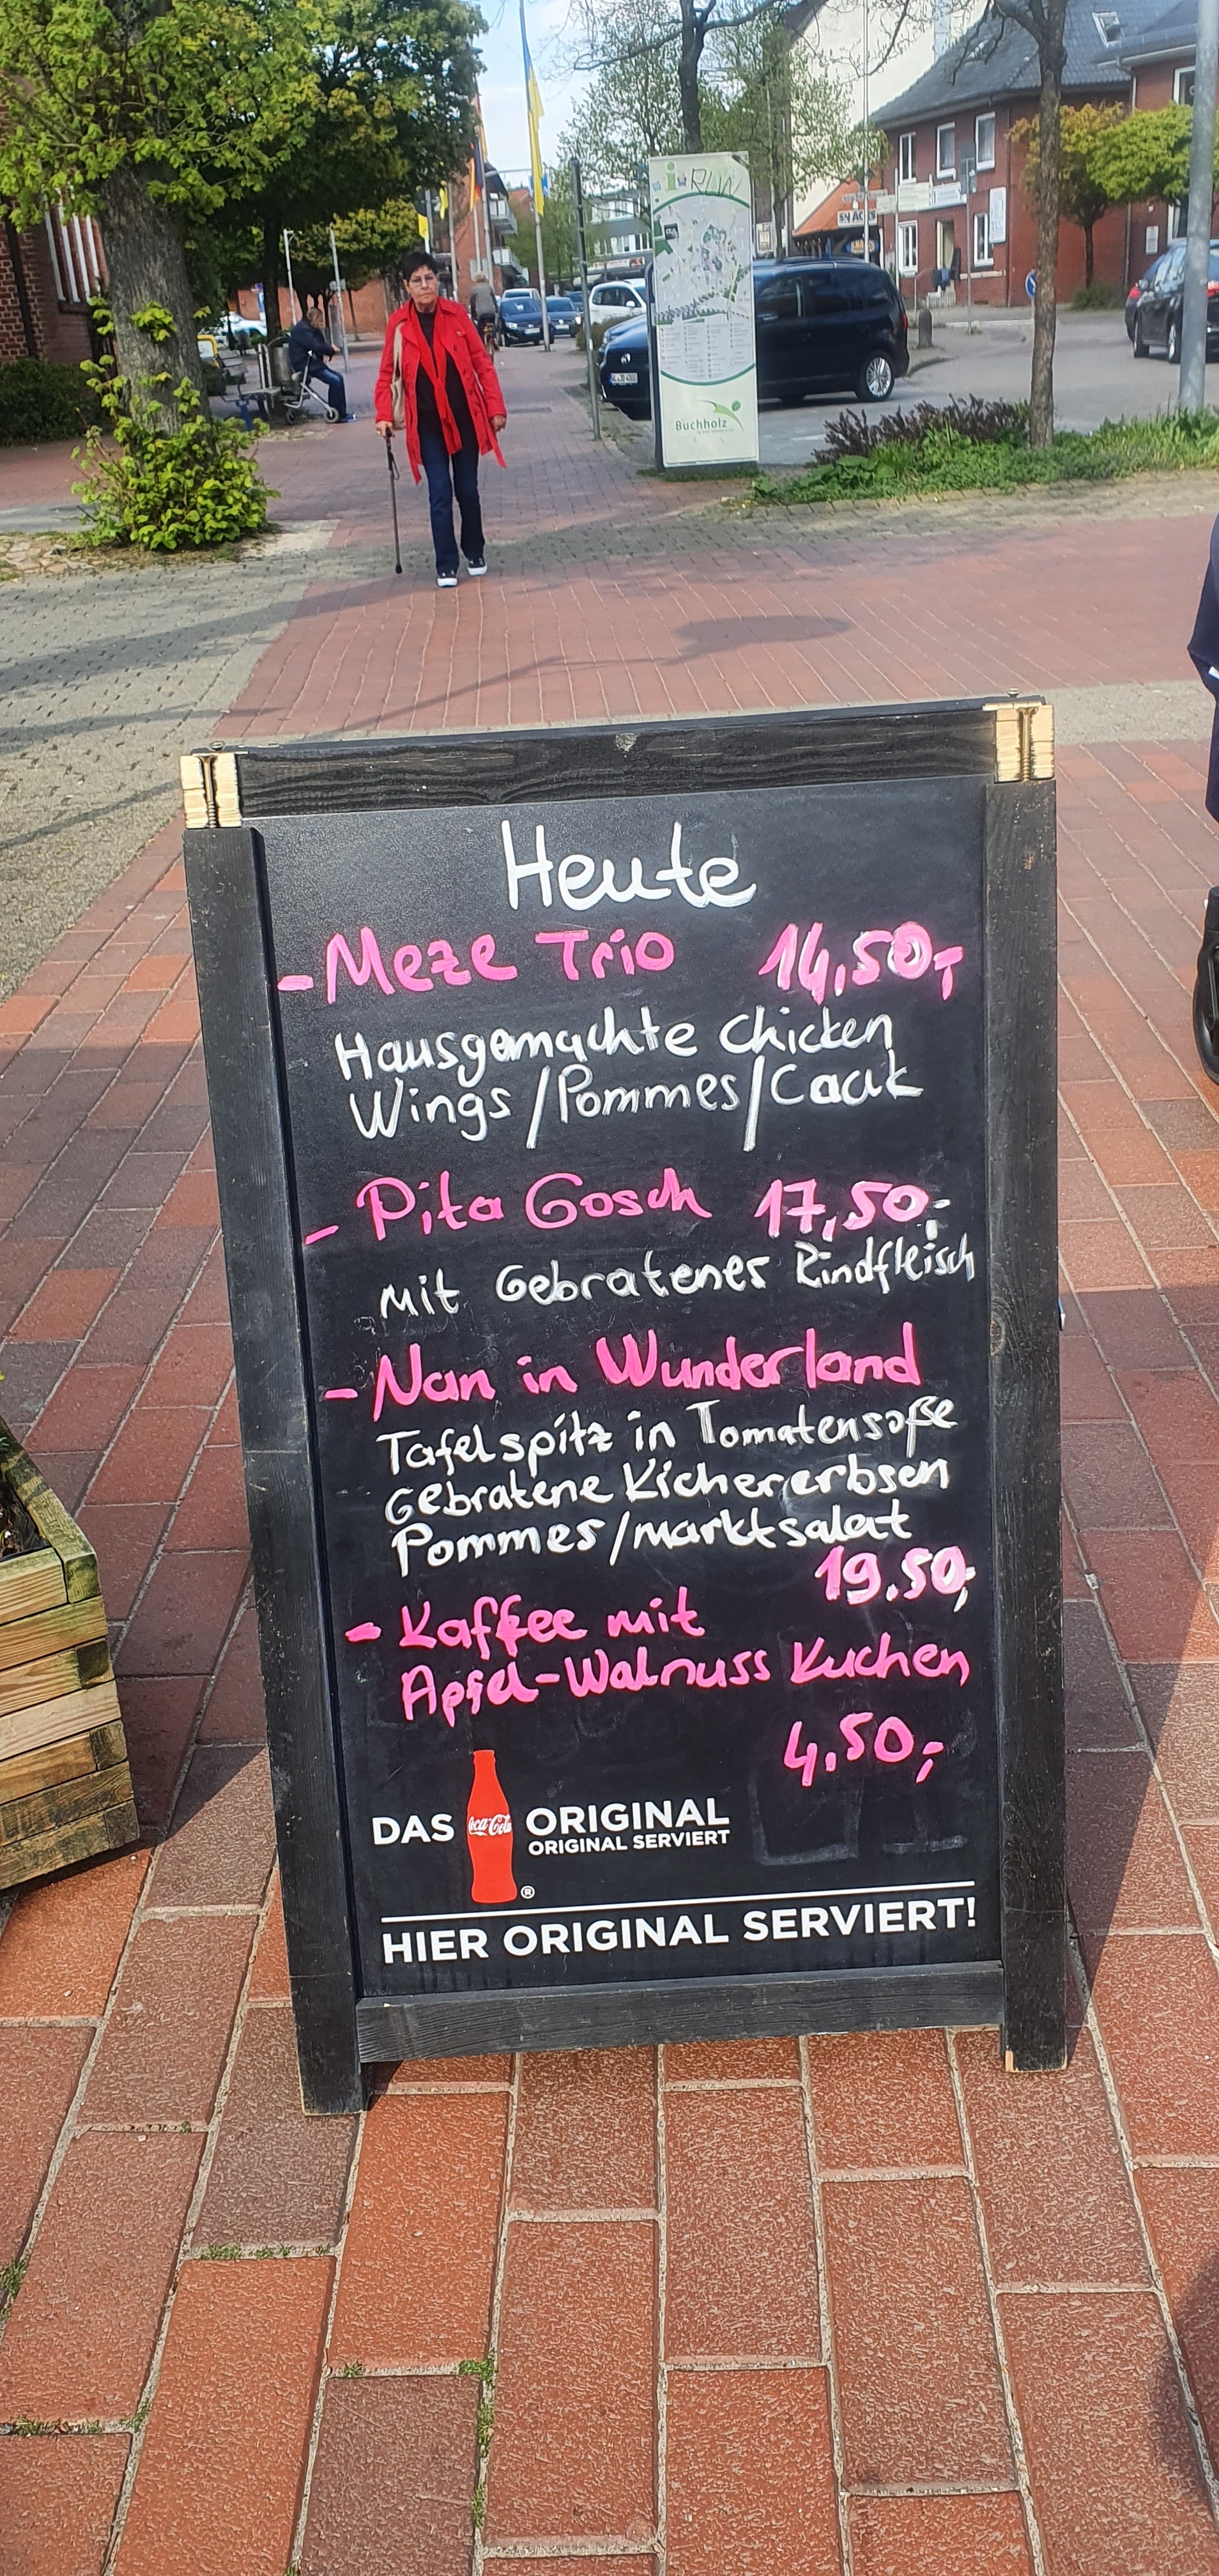 i RUN
SNACKS
Buchholz
Heute
- Meze Trio 14,50,-
Hausgemachte Chicken
Wings/Pommes/Caak
- Pita Gosch 17,50,-
mit Gebratenes Rindfleisch
- Nan in Wunderland
Tafelspitz in Tomatensoße
Gebratene Kichererbsen
Pommes/marktsalat
19.50,-
- Kaffee mit
Apfel-Walnuss Kuchen
4,50,-
DAS Coca-Cola ORIGINAL
ORIGINAL SERVIERT
®
HIER ORIGINAL SERVIERT!